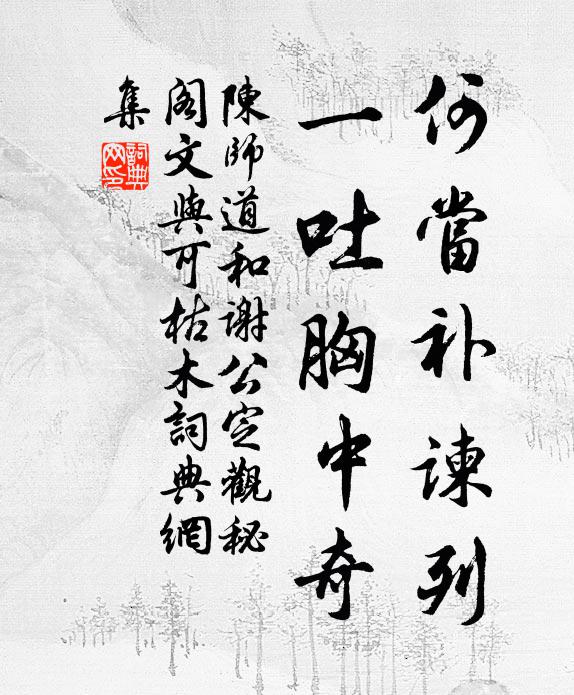 何當补谏列
一吐胸中奇
陳師道和謝公定觀秘
阁文與可枯木詞典網
集
詞典
网印